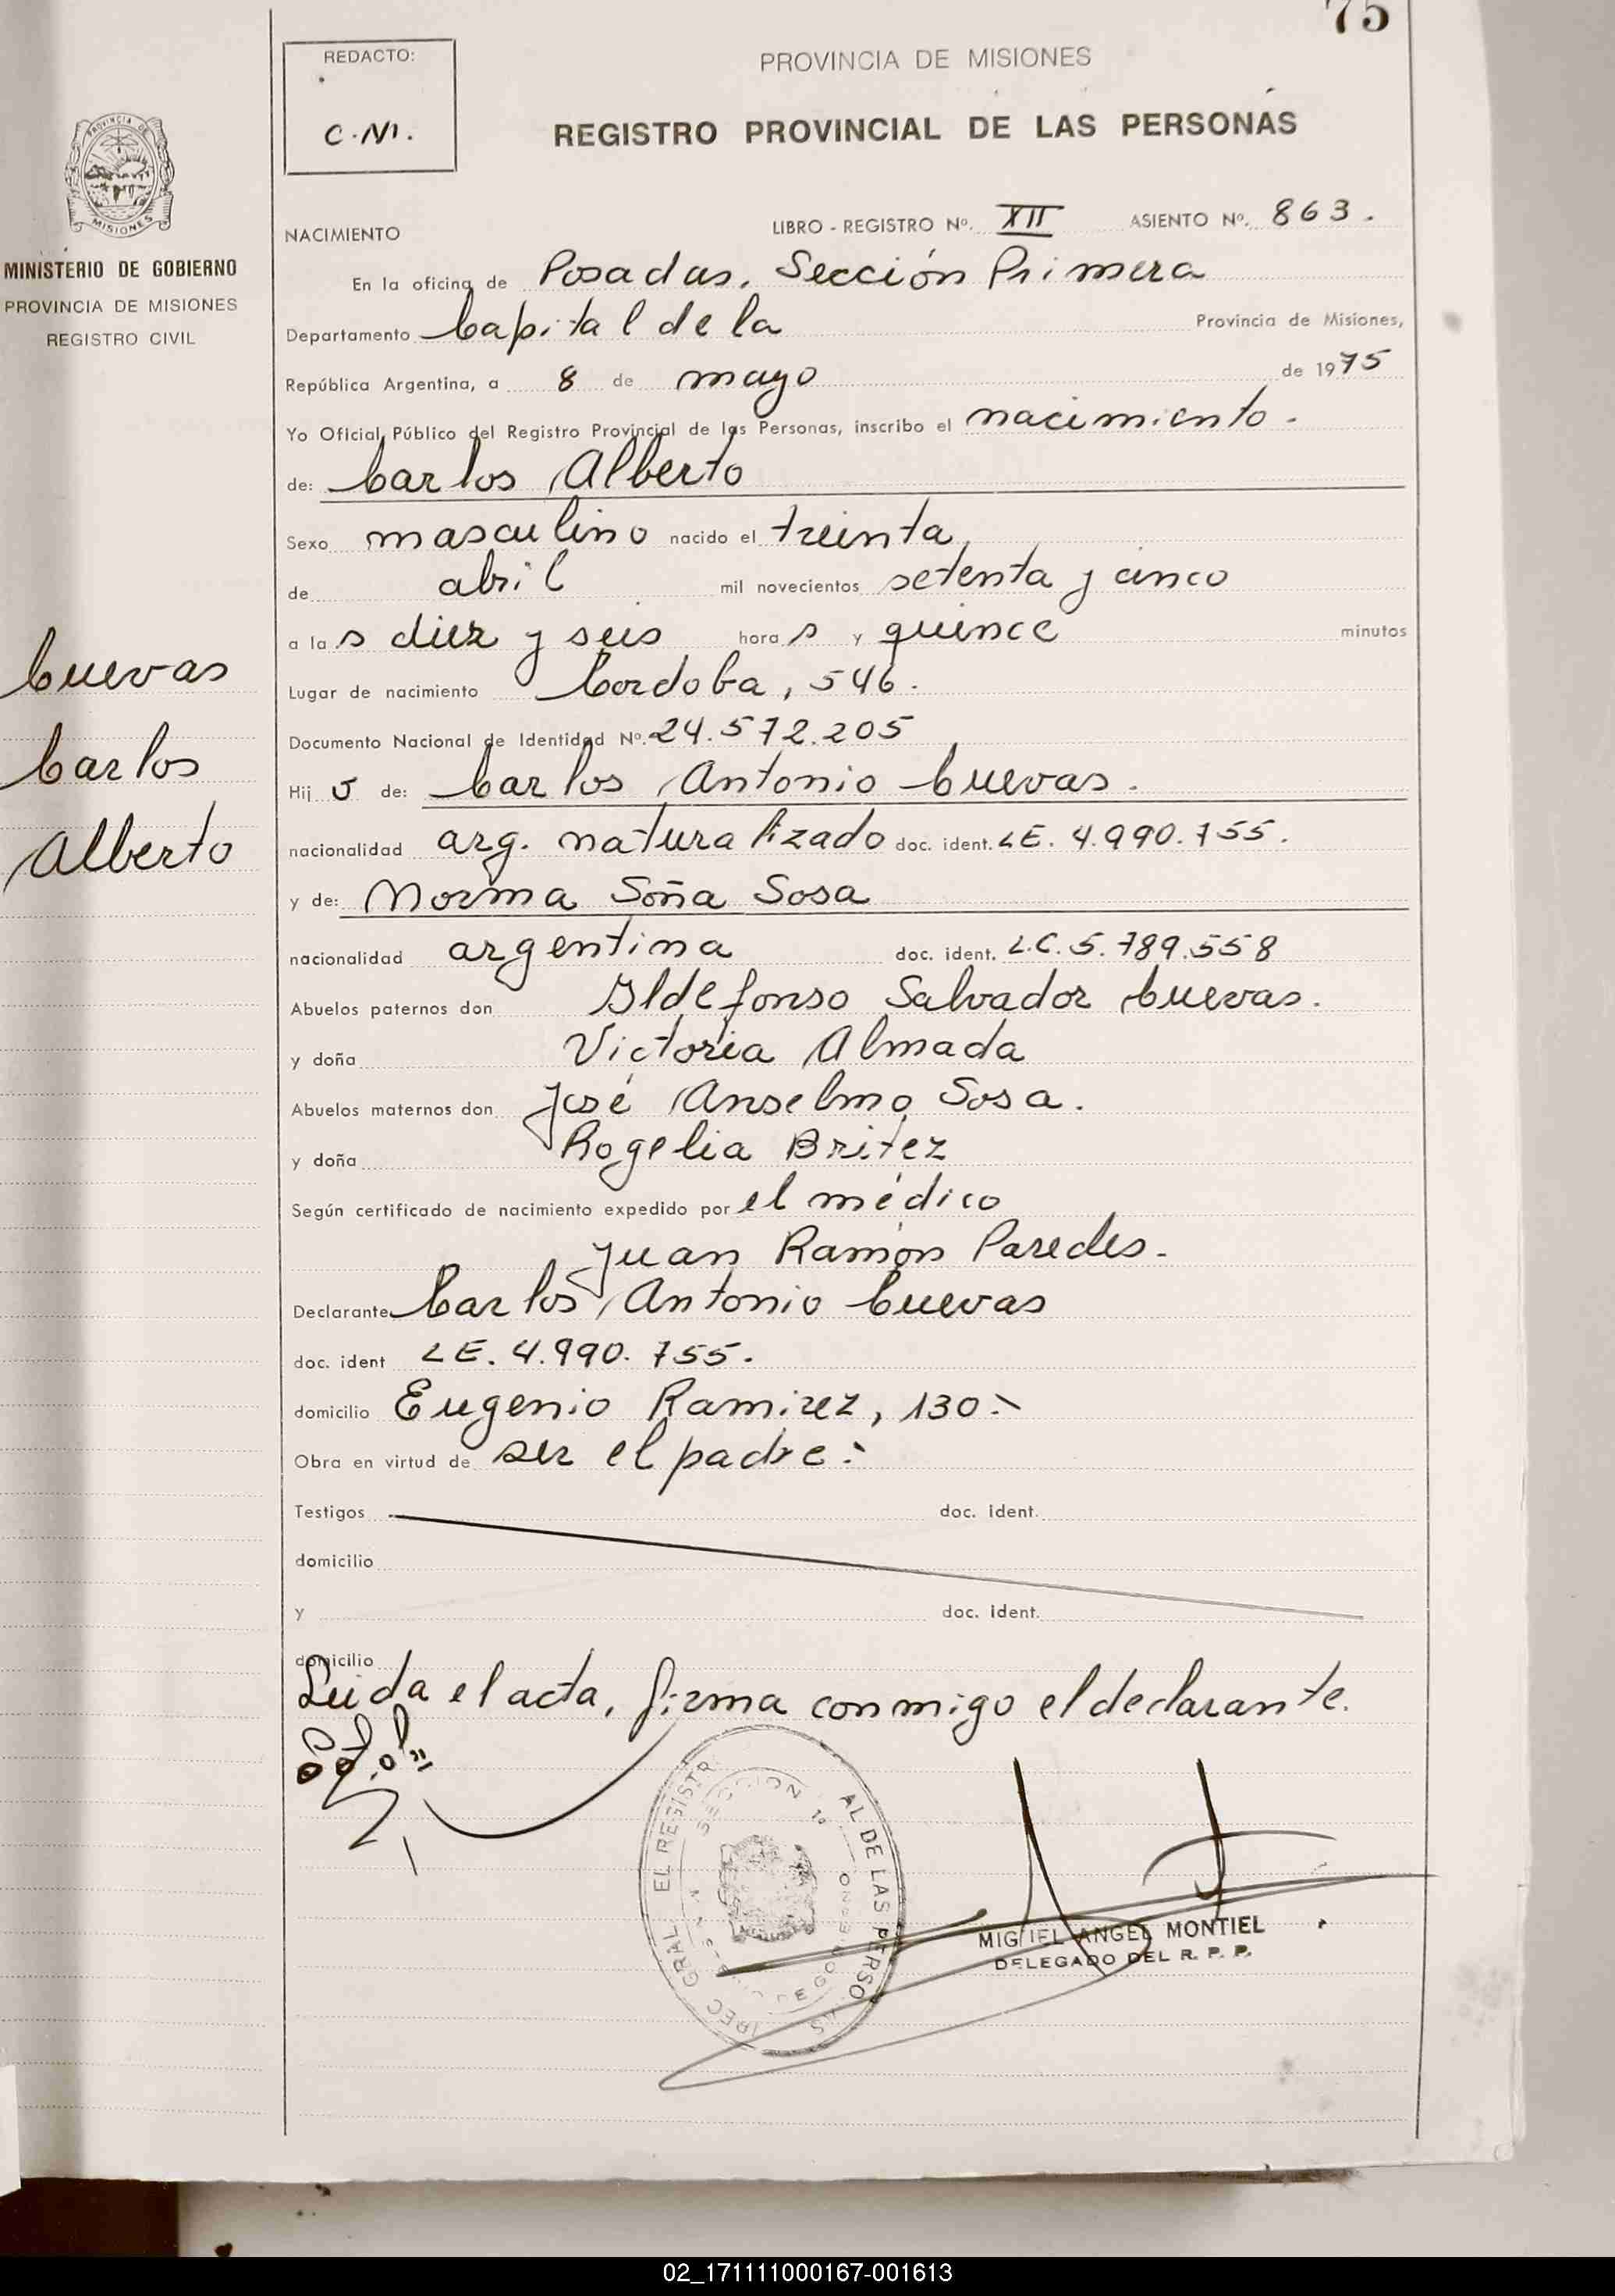 75
REDACTO:
C.M.
PROVINCIA DE MISIONES
REGISTRO PROVINCIAL DE LAS PERSONAS
MISIONES
MINISTERIO DE GOBIERNO
PROVINCIA DE MISIONES
REGISTRO CIVIL
Cuevas
Carlos
Alberto
NACIMIENTO LIBRO - REGISTRO Nº. XII ASIENTO Nº. 863.
En la oficina de Posadas, Sección Primera
Departamento Capital de la Provincia de Misiones,
República Argentina, a 8 de mayo de 1975
Yo Oficial Público del Registro Provincial de las Personas, inscribo el nacimiento.
de: Carlos Alberto
Sexo masculino nacido el treinta
de abril mil novecientos setenta y cinco
a las diez y seis horas y quince minutos
Lugar de nacimiento Cordoba, 546.
Documento Nacional de Identidad Nº. 24.572.205
Hijo de: Carlos Antonio Cuevas.
nacionalidad arg. naturalizado doc. ident. LE. 4.990.755.
y de: Norma Soña Sosa
nacionalidad argentina doc. ident. L.C. 5.789.558
Abuelos paternos don Ildefonso Salvador Cuevas.
y doña Victoria Almada
Abuelos maternos don José Anselmo Sosa.
y doña Rogelia Britez
Según certificado de nacimiento expedido por el médico
Juan Ramón Paredes.
Declarante Carlos Antonio Cuevas
doc. ident LE. 4.990.755.
domicilio Eugenio Ramirez, 130.-
Obra en virtud de ser el padre.-
Testigos doc. ident.
domicilio
y doc. ident.
domicilio
Leida el acta, firma conmigo el declarante.
SECCION 1ª
MIGUEL ANGEL MONTIEL
DELEGADO DEL R. P. P.
02_171111000167-001613